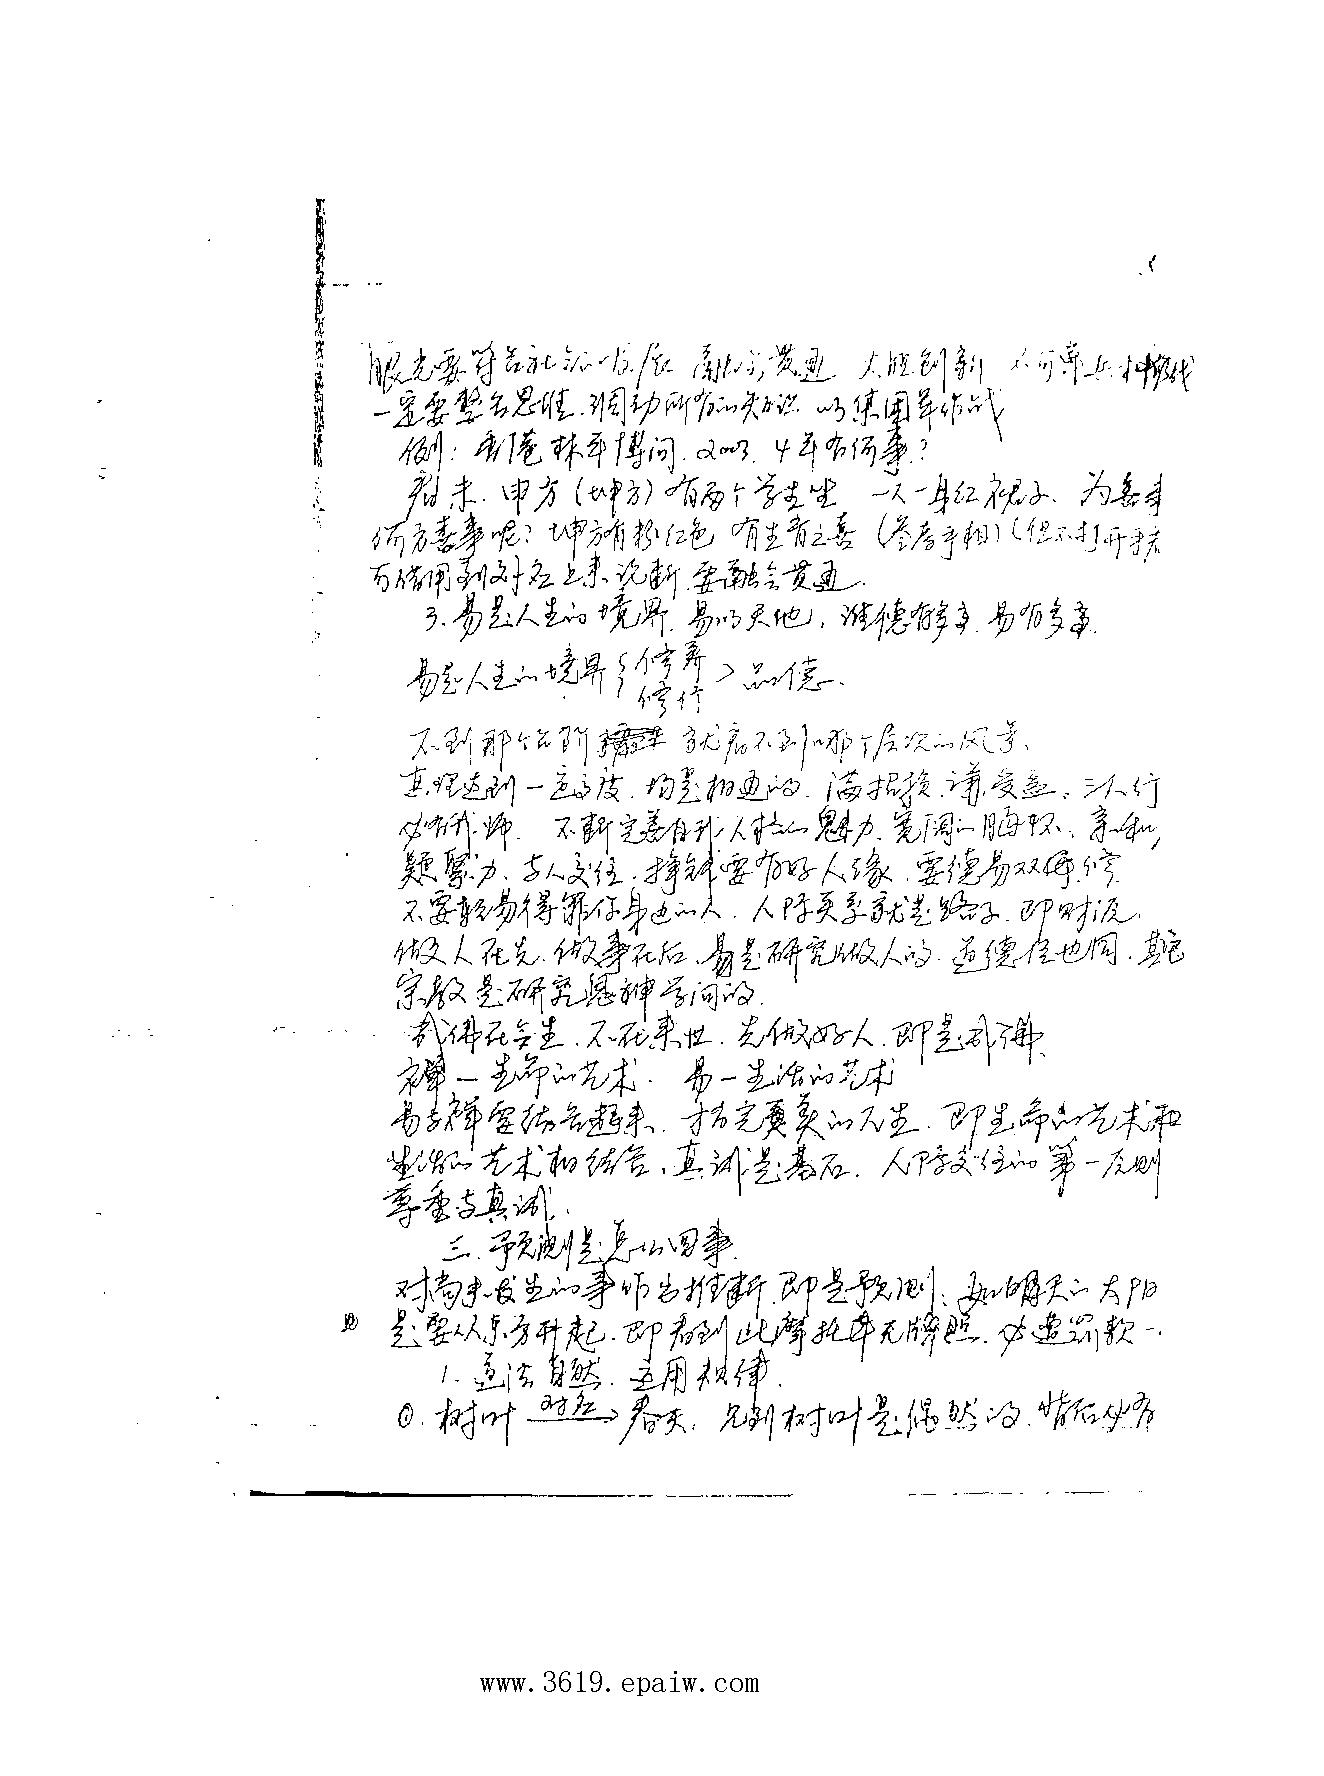 眼光要符合社会的发展 融会贯通 大胆创新 不可单兵种作战
一定要整合思维.调动所有的知识 以集团军作战
例:香港林年博问.2003.4年有何事?
看未.申方(坤方)有两个学生坐 一人一身红裙子.为喜事
何方喜事呢?坤方有粉红色 有生育之喜(参看手相)(但不打开
可借用到对应上来论断.要融会贯通.
3.易是人生的境界.易以天地,谁德有多高.易有多高.
易是人生的境界{修养 修行>品德.
不到那个台阶 就看不到哪个层次的风景.
真理达到一定高度.均是相通的.满招损.谦受益.三人行
必有我师. 不断完善自我人格的魅力.宽阔的胸怀、亲和,
凝聚力.与人交往.挣钱要有好人缘.要德易双修.
不要轻易得罪你身边的人.人际关系就是路子.即财源.
做人在先.做事在后.易是研究做人的.道德经也同.其它
宗教是研究鬼神学问的.
成佛在今生.不在来世.先做好人.即是成佛.
禅—生命的艺术. 易—生活的艺术
易与禅要结合起来.才有完美的人生.即生命的艺术和
生活的艺术相结合.真诚是基石.人际交往的第一原则
尊重与真诚.
三.预测是怎么回事.
对尚未发生的事作出推断.即是预测.如明天的太阳
是要从东方升起.即看到此摩托车无牌照.必遭罚款一.
1.道法自然.运用规律.
①.树叶 对应→ 春天.见到树叶是偶然的.背后必有
www.3619.epaiw.com